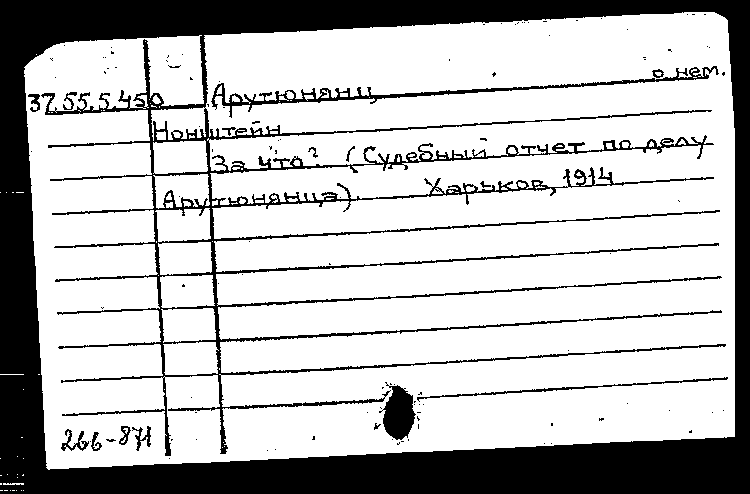 37.55.5.450 Арутюнянц, о нем.
Нонштейн
За что? (Судебный отчет по делу
Арутюнянца). Харьков, 1914
266-871